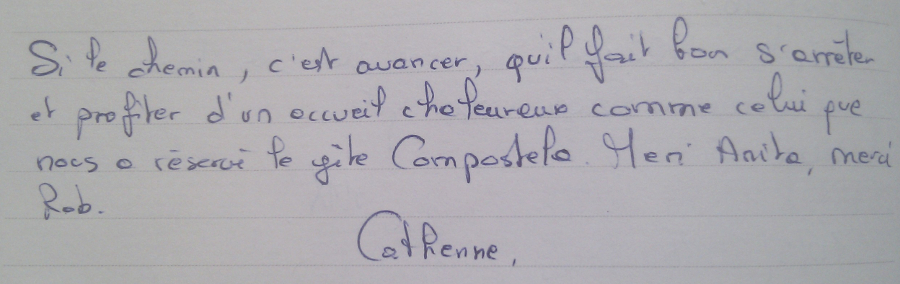 Si le chemin, c'est avancer, qu'il fait bon s'arrêter
et profiter d'un accueil chaleureux comme celui que
nous a réservé le gîte Compostela. Merci Anita, merci
Rob.
Catherine,